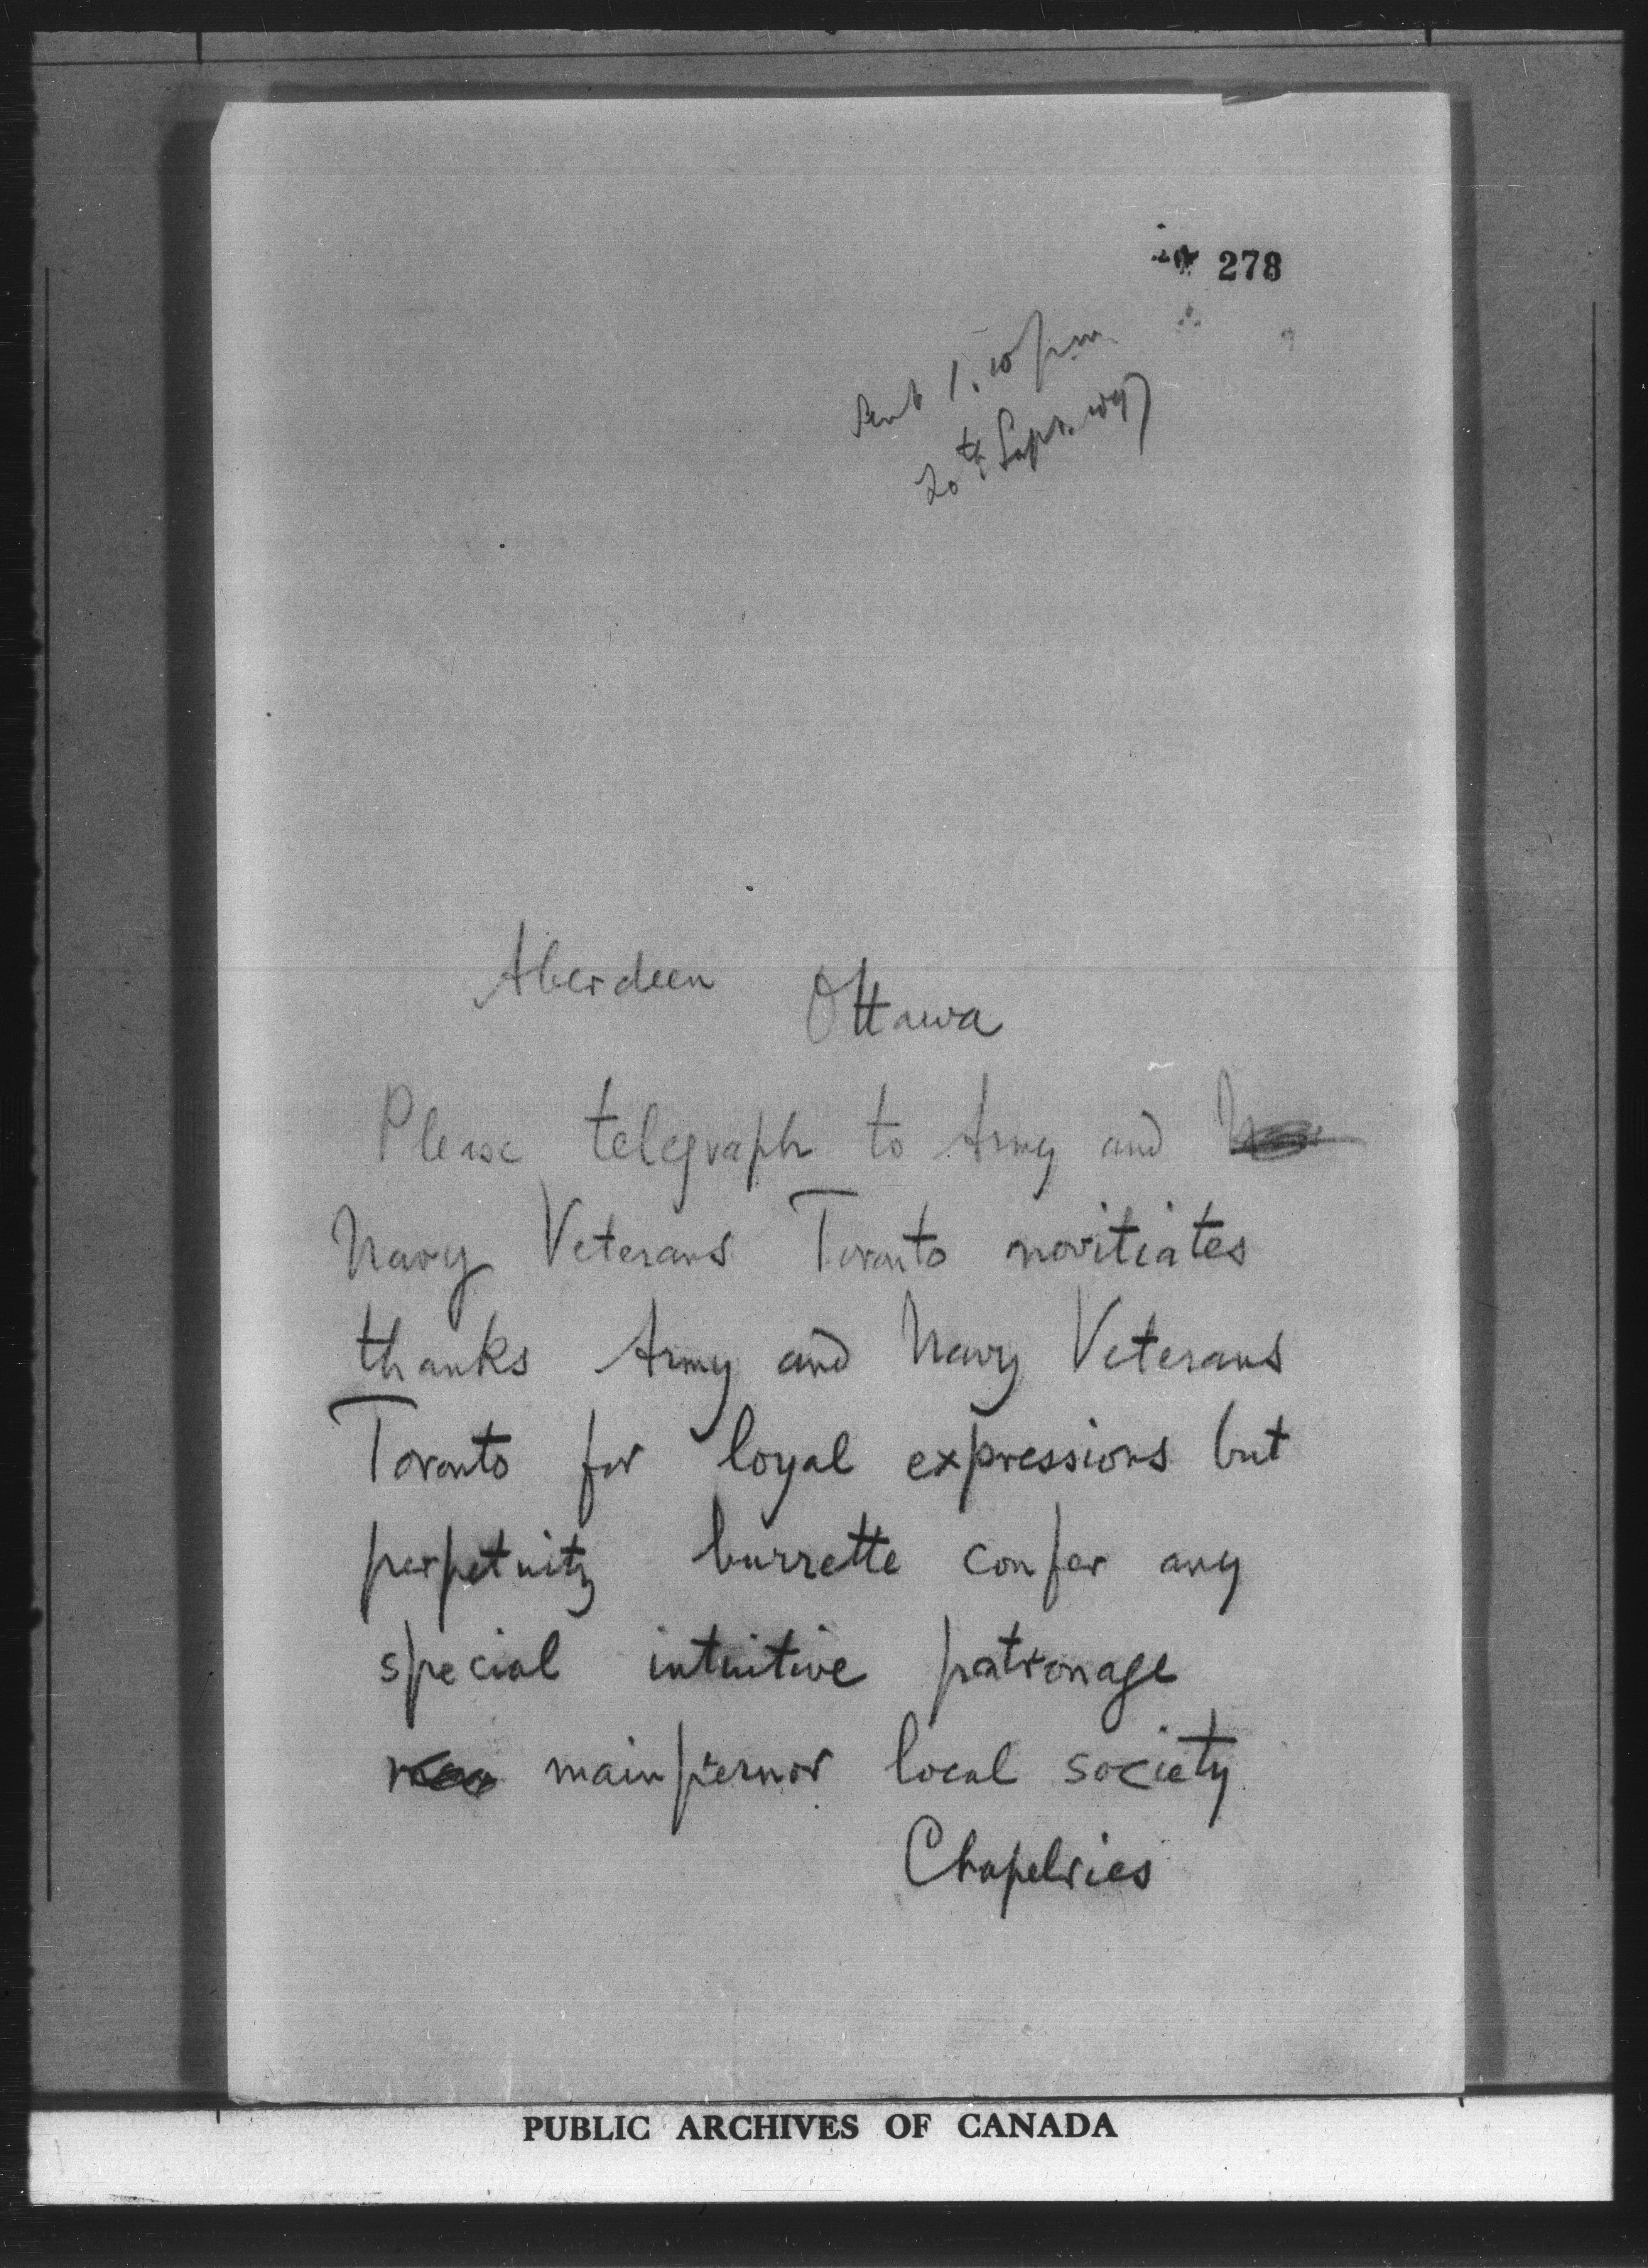 278
Sent 1.10 pm
20th Sept. 1897
Aberdeen Ottawa
Please telegraph to Army and
Navy Veterans Toronto novitiates
thanks Army and Navy Veterans
Toronto for loyal expressions but
perpetuity burrette confer any
special intuitive patronage
mainpernor local society
Chapelries
PUBLIC ARCHIVES OF CANADA